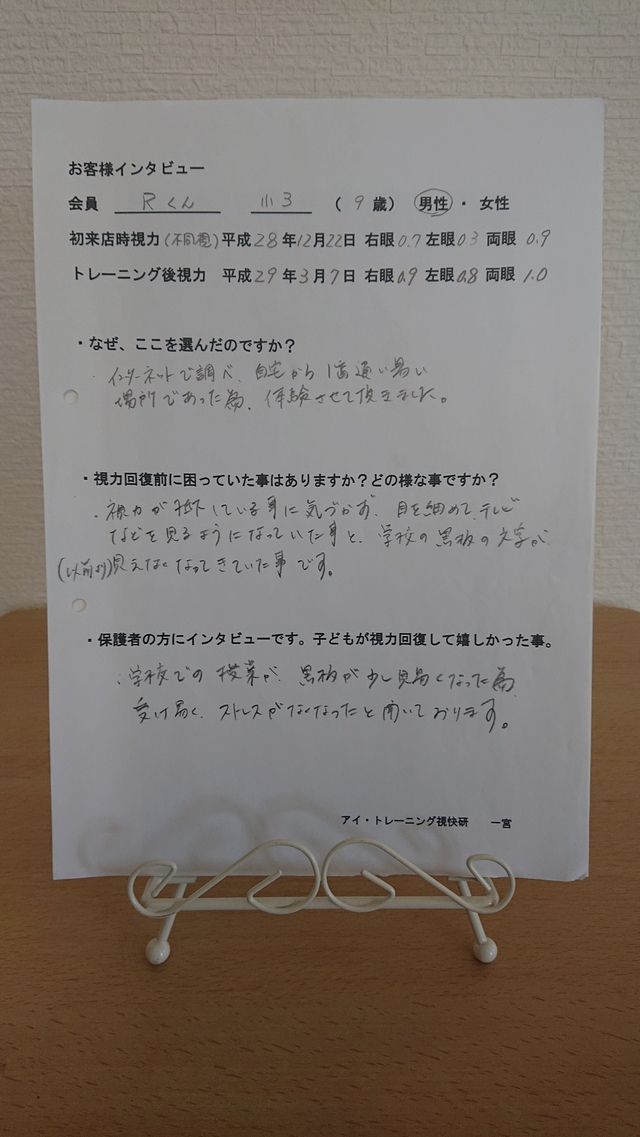 お客様インタビュー
会員 Rくん 小3 （ 9 歳） 男性 ・ 女性
初来店時視力(不同視)平成28年12月22日 右眼0.7左眼0.3両眼 0.9
トレーニング後視力 平成29年3月7日 右眼0.9左眼0.8両眼 1.0
・なぜ、ここを選んだのですか？
・インターネットで調べ、自宅から1番通い易い
場所であった為、体験させて頂きました。
・視力回復前に困っていた事はありますか？どの様な事ですか？
・視力が低下している事に気づかず、目を細めて、テレビ
などを見るようになっていた事と、学校の黒板の文字が
(以前より)見えなくなってきていた事です。
・保護者の方にインタビューです。子どもが視力回復して嬉しかった事。
・学校での授業が、黒板が少し見易くなった為
受け易く、ストレスがなくなったと聞いております。
アイ・トレーニング視快研 一宮